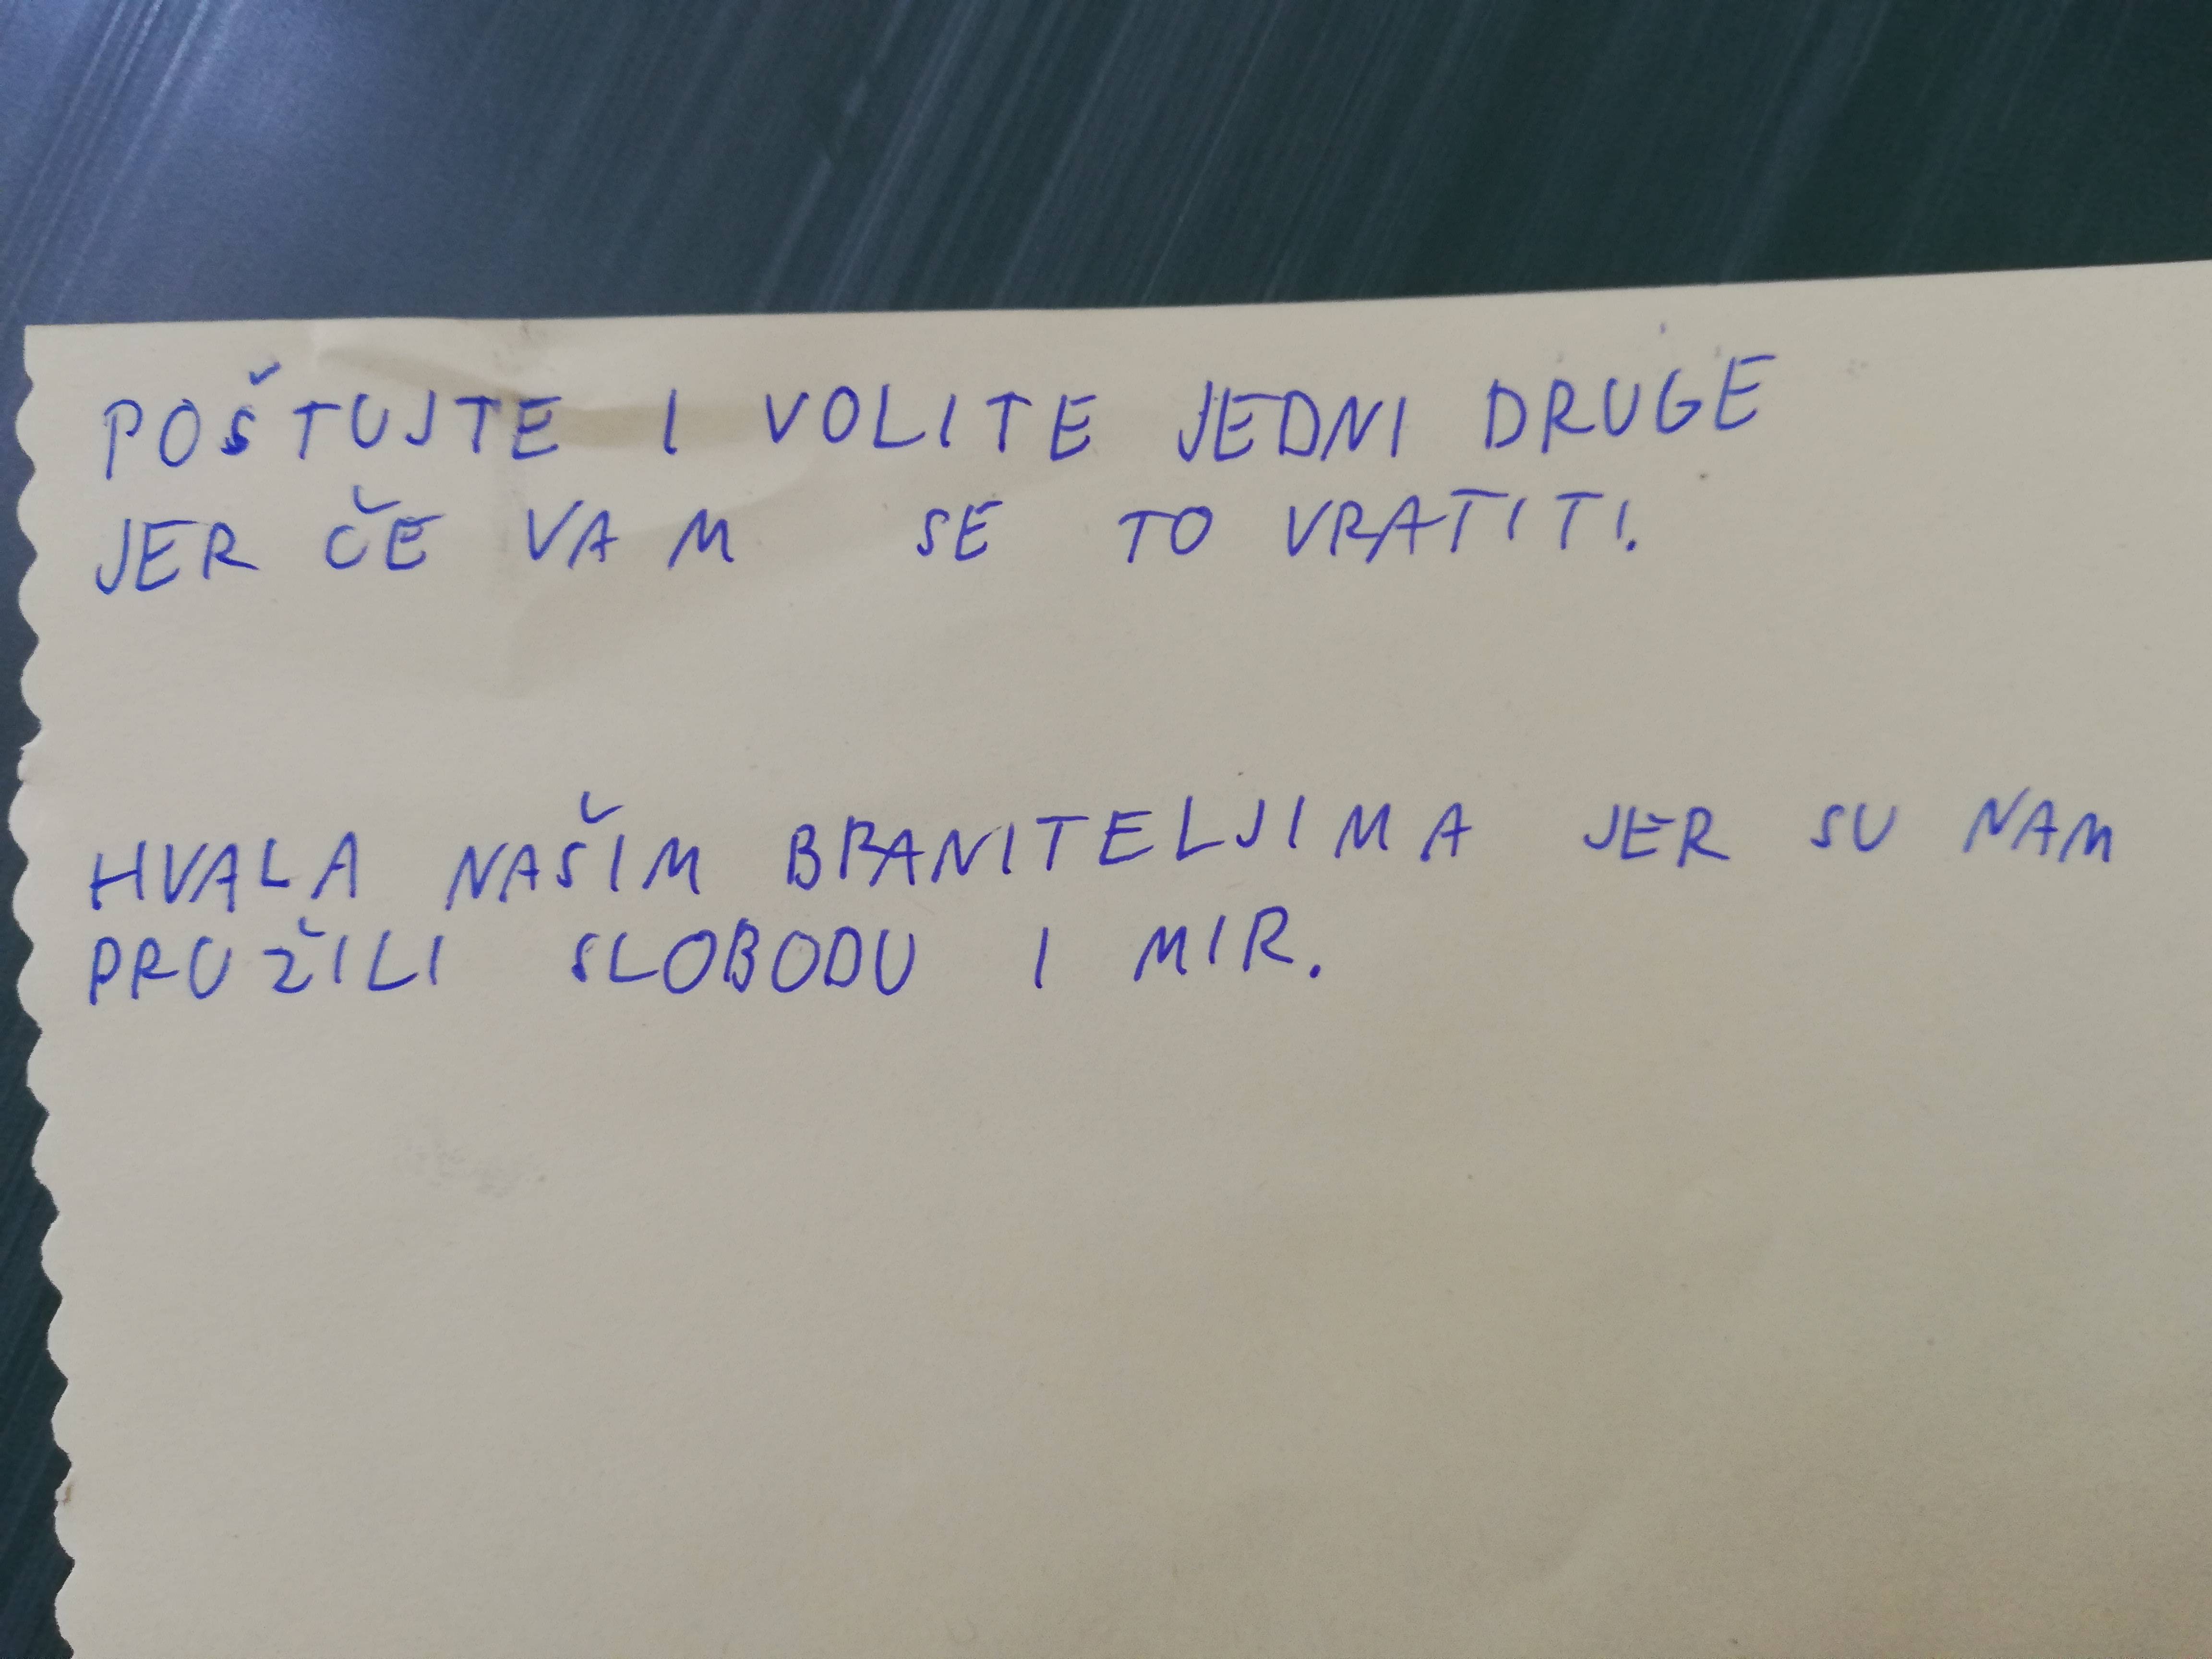 POŠTUJTE I VOLITE JEDNI DRUGE
JER ČE VAM SE TO VRATITI.
HVALA NAŠIM BRANITELJIMA JER SU NAM
PRUŽILI SLOBODU I MIR.